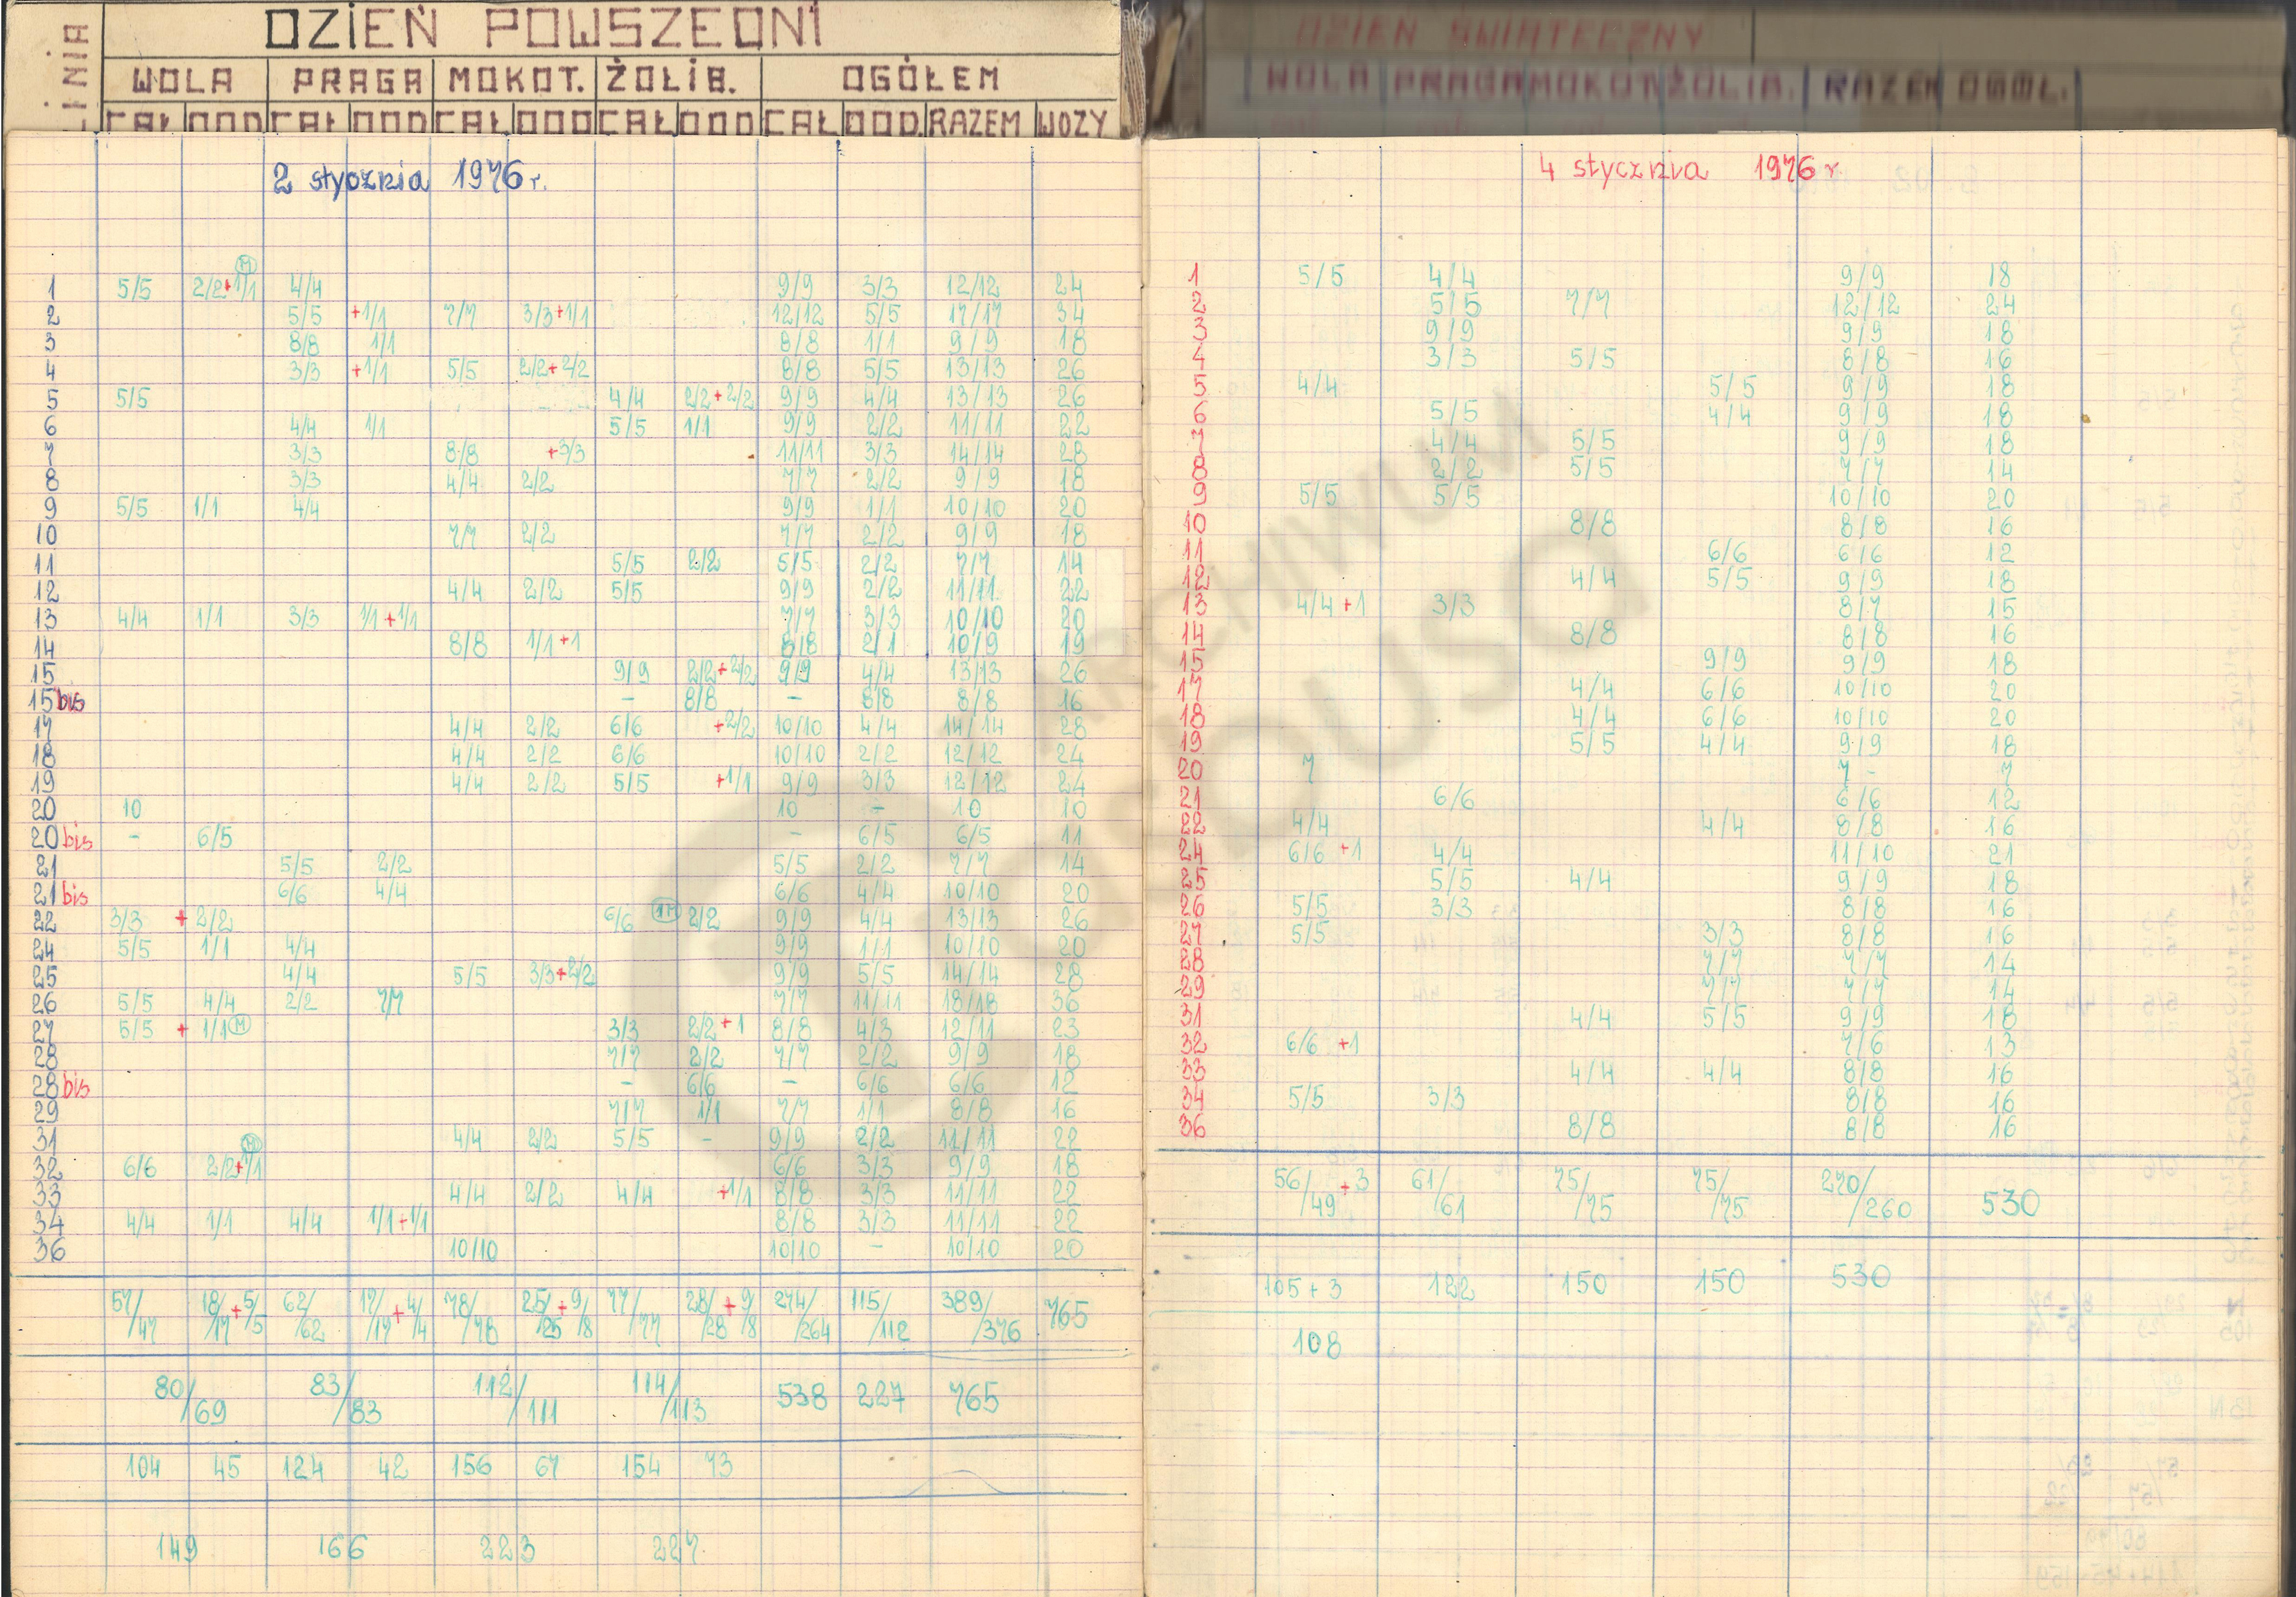 LINIA
DZIEŃ POWSZEDNI
WOLA PRAGA MOKOT. ŻOLIB. OGÓŁEM
CAŁ DOD CAŁ DOD CAŁ DOD CAŁ DOD CAŁ DOD. RAZEM WOZY
2 stycznia 1976 r.
1 5/5 2/2+1/1 M 4/4 9/9 3/3 12/12 24
2 5/5 +1/1 7/7 3/3+1/1 12/12 5/5 17/17 34
3 8/8 1/1 8/8 1/1 9/9 18
4 3/3 +1/1 5/5 2/2+2/2 8/8 5/5 13/13 26
5 5/5 4/4 2/2+2/2 9/9 4/4 13/13 26
6 4/4 1/1 5/5 1/1 9/9 2/2 11/11 22
7 3/3 8/8 +3/3 11/11 3/3 14/14 28
8 3/3 4/4 2/2 7/7 2/2 9/9 18
9 5/5 1/1 4/4 9/9 1/1 10/10 20
10 7/7 2/2 7/7 2/2 9/9 18
11 5/5 2/2 5/5 2/2 7/7 14
12 4/4 2/2 5/5 9/9 2/2 11/11 22
13 4/4 1/1 3/3 1/1+1/1 7/7 3/3 10/10 20
14 8/8 1/1+1 8/8 2/1 10/9 19
15 9/9 2/2+2/2 9/9 4/4 13/13 26
15 bis - 8/8 - 8/8 8/8 16
17 4/4 2/2 6/6 +2/2 10/10 4/4 14/14 28
18 4/4 2/2 6/6 10/10 2/2 12/12 24
19 4/4 2/2 5/5 +1/1 9/9 3/3 12/12 24
20 10 10 - 10 10
20 bis - 6/5 - 6/5 6/5 11
21 5/5 2/2 5/5 2/2 7/7 14
21 bis 6/6 4/4 6/6 4/4 10/10 20
22 3/3 + 2/2 6/6 1M 2/2 9/9 4/4 13/13 26
24 5/5 1/1 4/4 9/9 1/1 10/10 20
25 4/4 5/5 3/3+2/2 9/9 5/5 14/14 28
26 5/5 4/4 2/2 7/7 7/7 11/11 18/18 36
27 5/5 + 1/1 M 3/3 2/2+1 8/8 4/3 12/11 23
28 7/7 2/2 7/7 2/2 9/9 18
28 bis - 6/6 - 6/6 6/6 12
29 7/7 1/1 7/7 1/1 8/8 16
31 4/4 2/2 5/5 - 9/9 2/2 11/11 22
32 6/6 2/2+1/1 M 6/6 3/3 9/9 18
33 4/4 2/2 4/4 +1/1 8/8 3/3 11/11 22
34 4/4 1/1 4/4 1/1+1/1 8/8 3/3 11/11 22
36 10/10 10/10 - 10/10 20
57/47 18/17+5/5 62/62 17/17+4/4 78/78 25/25+9/8 77/77 28/28+9/8 274/264 115/112 389/376 765
80/69 83/83 112/111 114/113 538 227 765
104 45 124 42 156 67 154 73
149 166 223 227
DZIEŃ ŚWIĄTECZNY
WOLA PRAGA MOKOT ŻOLIB. RAZEM OGÓŁ.
4 stycznia 1976 r
1 5/5 4/4 9/9 18
2 5/5 7/7 12/12 24
3 9/9 9/9 18
4 3/3 5/5 8/8 16
5 4/4 5/5 9/9 18
6 5/5 4/4 9/9 18
7 4/4 5/5 9/9 18
8 2/2 5/5 7/7 14
9 5/5 5/5 10/10 20
10 8/8 8/8 16
11 6/6 6/6 12
12 4/4 5/5 9/9 18
13 4/4+1 3/3 8/7 15
14 8/8 8/8 16
15 9/9 9/9 18
17 4/4 6/6 10/10 20
18 4/4 6/6 10/10 20
19 5/5 4/4 9/9 18
20 7 7 - 7
21 6/6 6/6 12
22 4/4 4/4 8/8 16
24 6/6 +1 4/4 11/10 21
25 5/5 4/4 9/9 18
26 5/5 3/3 8/8 16
27 5/5 3/3 8/8 16
28 7/7 7/7 14
29 7/7 7/7 14
31 4/4 5/5 9/9 18
32 6/6 +1 7/6 13
33 4/4 4/4 8/8 16
34 5/5 3/3 8/8 16
36 8/8 8/8 16
56/49+3 61/61 75/75 75/75 270/260 530
105+3 122 150 150 530
108
ARCHIWUM